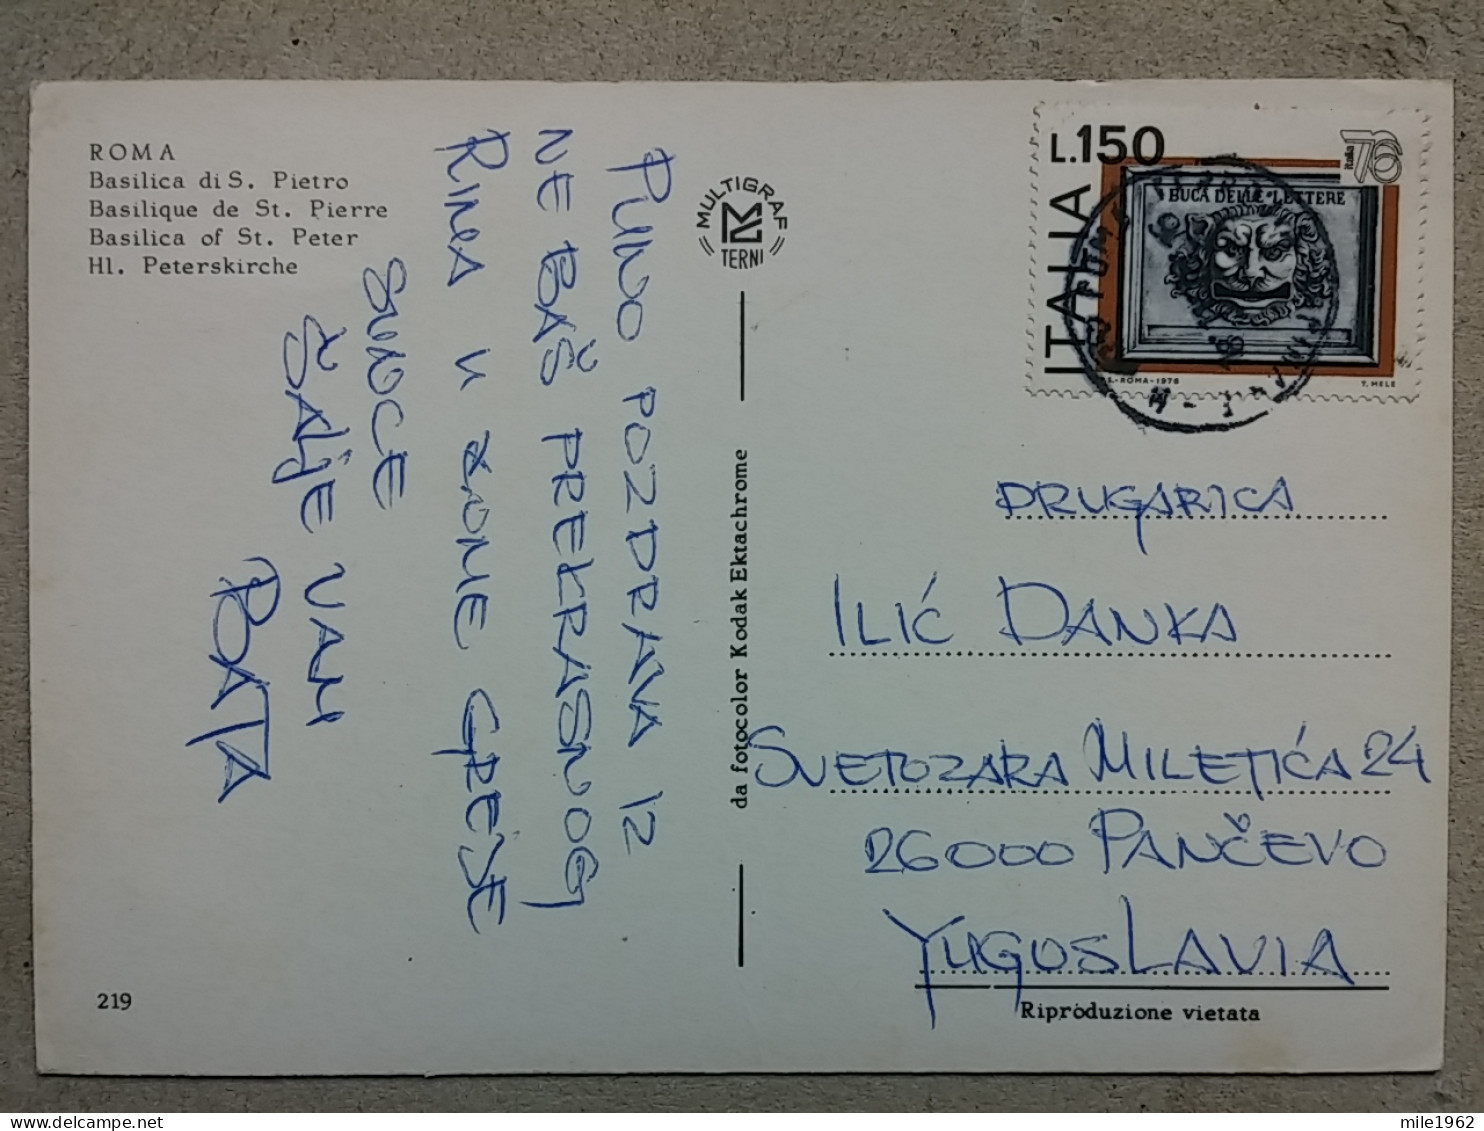 ROMA
Basilica di S. Pietro
Basilique de St. Pierre
Basilica of St. Peter
Hl. Peterskirche
PUNO POZDRAVA IZ
NE BAŠ PREKRASNOG
RIMA U ZONE GREJE
SUNCE
ŠALJE VAM
BATA
219
MULTIGRAF
TERNI
da fotocolor Kodak Ektachrome
L.150
Italia 76
ITALIA
BUCA DELLE LETTERE
ROMA-1976
T. MELE
DRUGARICA
ILIĆ DANKA
SVETOZARA MILETIĆA 24
26000 PANČEVO
YUGOSLAVIA
Riproduzione vietata
mile1962